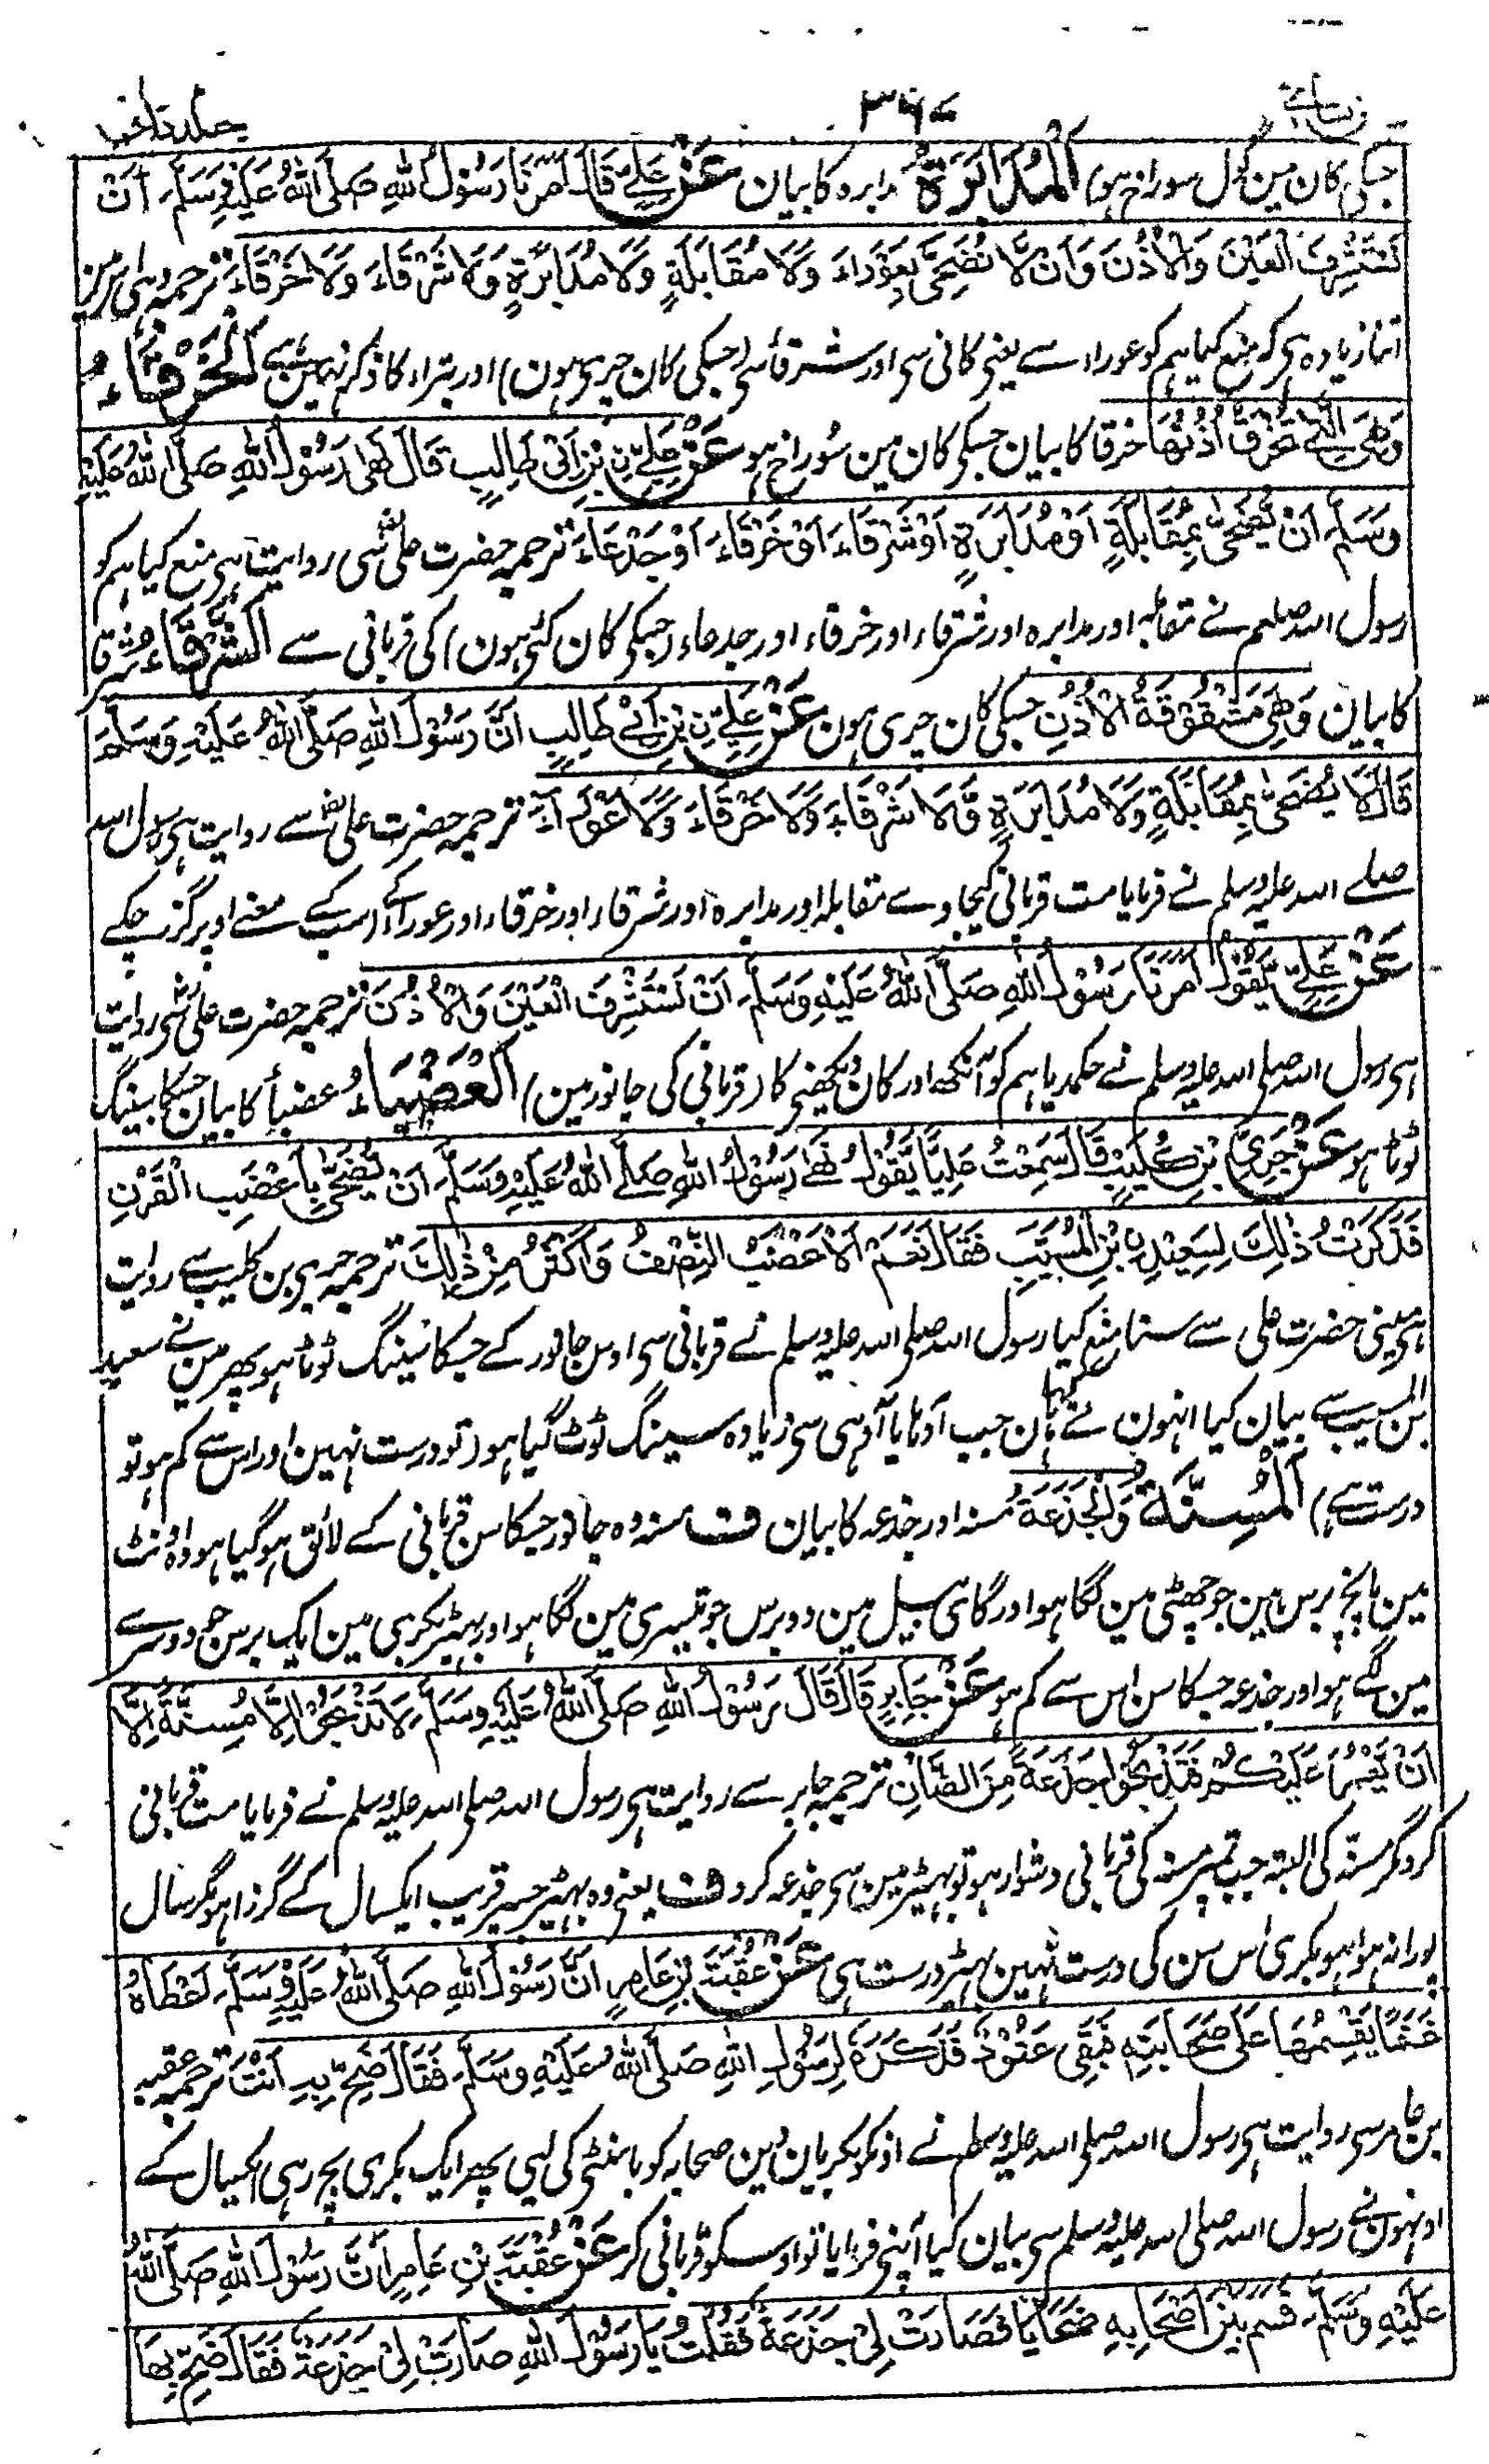 نسائی ۳۶۷ جلد ثانی
جسکی کان مین گول سوراخ ہو) اَلْمُدَابَرَةُ مدابرہ کا بیان عَنْ عَلِيٍّ قَالَ اَمَرَنَا رَسُوْلُ اللهِ صَلَّى اللهُ عَلَيْهِ وَسَلَّمَ اَنْ
نَسْتَشْرِفَ الْعَيْنَ وَالْاُذُنَ وَاَنْ لَّا نُضَحِّىَ بِعَوْرَاءَ وَلَا مُقَابَلَةٍ وَلَا مُدَابَرَةٍ وَلَا شَرْقَاءَ وَلَا خَرْقَاءَ ترجمہ وہی
اتنا زیادہ ہی کہ منع کیا ہم کو عوراء سے یعنی کانی سی اور شرقاء سی (جسکی کان چری ہون) اور بتراء کا ذکر نہین ہے اَلْخَرْقَاءُ
وَهِىَ الَّتِىْ تُخْرَقُ اُذُنُهَا خرقا کا بیان جسکی کان مین سوراخ ہو عَنْ عَلِيِّ بْنِ اَبِىْ طَالِبٍ قَالَ نَهٰى رَسُوْلُ اللهِ صَلَّى اللهُ عَلَيْهِ
وَسَلَّمَ اَنْ نُضَحِّىَ بِمُقَابَلَةٍ اَوْ مُدَابَرَةٍ اَوْ شَرْقَاءَ اَوْ خَرْقَاءَ اَوْ جَدْعَاءَ ترجمہ حضرت علی سی روایت ہی منع کیا ہم کو
رسول اللہ صلعم نے مقابلہ اور مدابرہ اور شرقاء اور خرقاء اور جدعاء (جسکی کان کٹی ہون) کی قربانی سے اَلشَّرْقَاءُ شرقا
کا بیان وَهِىَ مَشْقُوْقَةُ الْاُذُنِ جسکی کان چری ہون عَنْ عَلِيِّ بْنِ اَبِىْ طَالِبٍ اَنَّ رَسُوْلَ اللهِ صَلَّى اللهُ عَلَيْهِ وَسَلَّمَ
قَالَ لَا يُضَحّٰى بِمُقَابَلَةٍ وَلَا مُدَابَرَةٍ وَّلَا شَرْقَاءَ وَلَا خَرْقَاءَ وَلَا عَوْرَاءَ ترجمہ حضرت علی سے روایت ہی رسول اللہ
صلے اللہ علیہ وسلم نے فرمایا مت قربانی کیجاوے مقابلہ اور مدابرہ اور شرقاء اور خرقاء اور عوراء کے (سب کے معنے اوپر گزر چکے
عَنْ عَلِيٍّ يَّقُوْلُ اَمَرَنَا رَسُوْلُ اللهِ صَلَّى اللهُ عَلَيْهِ وَسَلَّمَ اَنْ نَسْتَشْرِفَ الْعَيْنَ وَالْاُذُنَ ترجمہ حضرت علی سی روایت
ہی رسول اللہ صلی اللہ علیہ وسلم نے حکم دیا ہم کو آنکھ اور کان دیکھنی کا (قربانی کی جانور مین) اَلْعَضْبَاءُ عضباء کا بیان جسکا سینگ
ٹوٹا ہو عَنْ جُرَىِّ بْنِ كُلَيْبٍ قَالَ سَمِعْتُ عَلِيًّا يَّقُوْلُ نَهٰى رَسُوْلُ اللهِ صَلَّى اللهُ عَلَيْهِ وَسَلَّمَ اَنْ يُّضَحّٰى بِاَعْضَبِ الْقَرْنِ
فَذَكَرْتُ ذٰلِكَ لِسَعِيْدِ بْنِ الْمُسَيَّبِ فَقَالَ نَعَمْ اَلْاَعْضَبُ النِّصْفُ وَاَكْثَرُ مِنْ ذٰلِكَ ترجمہ جری بن کلیب سے روایت
ہی مینی حضرت علی سے سنا منع کیا رسول اللہ صلی اللہ علیہ وسلم نے قربانی سی اوس جانور کے جسکا سینگ ٹوٹا ہو پھر مین نے سعید
بن المسیب سے بیان کیا انہون نے کہا ہان جب آدہا یا آدہی سی زیادہ سینگ ٹوٹ گیا ہو (تو درست نہین اور اس سے کم ہو تو
درست ہے) اَلْمُسِنَّةُ وَالْجَذَعَةُ مسنہ اور جذعہ کا بیان ف مسنہ وہ جانور جسکا سن قربانی کے لائق ہو گیا ہو اونٹ
مین پانچ برس مین جو چھٹی مین لگا ہو اور گای بیل مین دو برس جو تیسری مین لگا ہو اور بہیڑ بکری مین ایک برس جو دوسرے
مین لگے ہو اور جذعہ جسکا سن اس سے کم ہو عَنْ جَابِرٍ قَالَ قَالَ رَسُوْلُ اللهِ صَلَّى اللهُ عَلَيْهِ وَسَلَّمَ لَا تَذْبَحُوْا اِلَّا مُسِنَّةً اِلَّا
اَنْ يَّعْسُرَ عَلَيْكُمْ فَتَذْبَحُوْا جَذَعَةً مِّنَ الضَّاْنِ ترجمہ جابر سے روایت ہی رسول اللہ صلی اللہ علیہ وسلم نے فرمایا مت قربانی
کرو مگر مسنّہ کی البتہ جب تمپر مسنہ کی قربانی دشوار ہو تو بہیڑ مین سی جذعہ کرو ف یعنے وہ بہیڑ جسپر قریب ایکسال کے گزرا ہو مگر سال
پورا نہ ہوا ہو بکری اس سن کی درست نہین بہیڑ درست ہی عَنْ عُقْبَةَ بْنِ عَامِرٍ اَنَّ رَسُوْلَ اللهِ صَلَّى اللهُ عَلَيْهِ وَسَلَّمَ اَعْطَاهُ
غَنَمًا يَقْسِمُهَا عَلٰى صَحَابَتِهٖ فَبَقِىَ عَتُوْدٌ فَذَكَرَهٗ لِرَسُوْلِ اللهِ صَلَّى اللهُ عَلَيْهِ وَسَلَّمَ فَقَالَ ضَحِّ بِهٖ اَنْتَ ترجمہ عقبہ
بن عامر سی روایت ہی رسول اللہ صلی اللہ علیہ وسلم نے اونکو بکریان دین صحابہ کو بانٹنی کی لیی پھر ایک بکری بچ رہی ایکسال کے
اونہون نے رسول اللہ صلی اللہ علیہ وسلم سی بیان کیا آپنے فرمایا تو اوسکو قربانی کر عَنْ عُقْبَةَ بْنِ عَامِرٍ اَنَّ رَسُوْلَ اللهِ صَلَّى اللهُ
عَلَيْهِ وَسَلَّمَ قَسَمَ بَيْنَ اَصْحَابِهٖ ضَحَايَا فَصَارَتْ لِىْ جَذَعَةٌ فَقُلْتُ يَا رَسُوْلَ اللهِ صَارَتْ لِىْ جَذَعَةٌ فَقَالَ ضَحِّ بِهَا